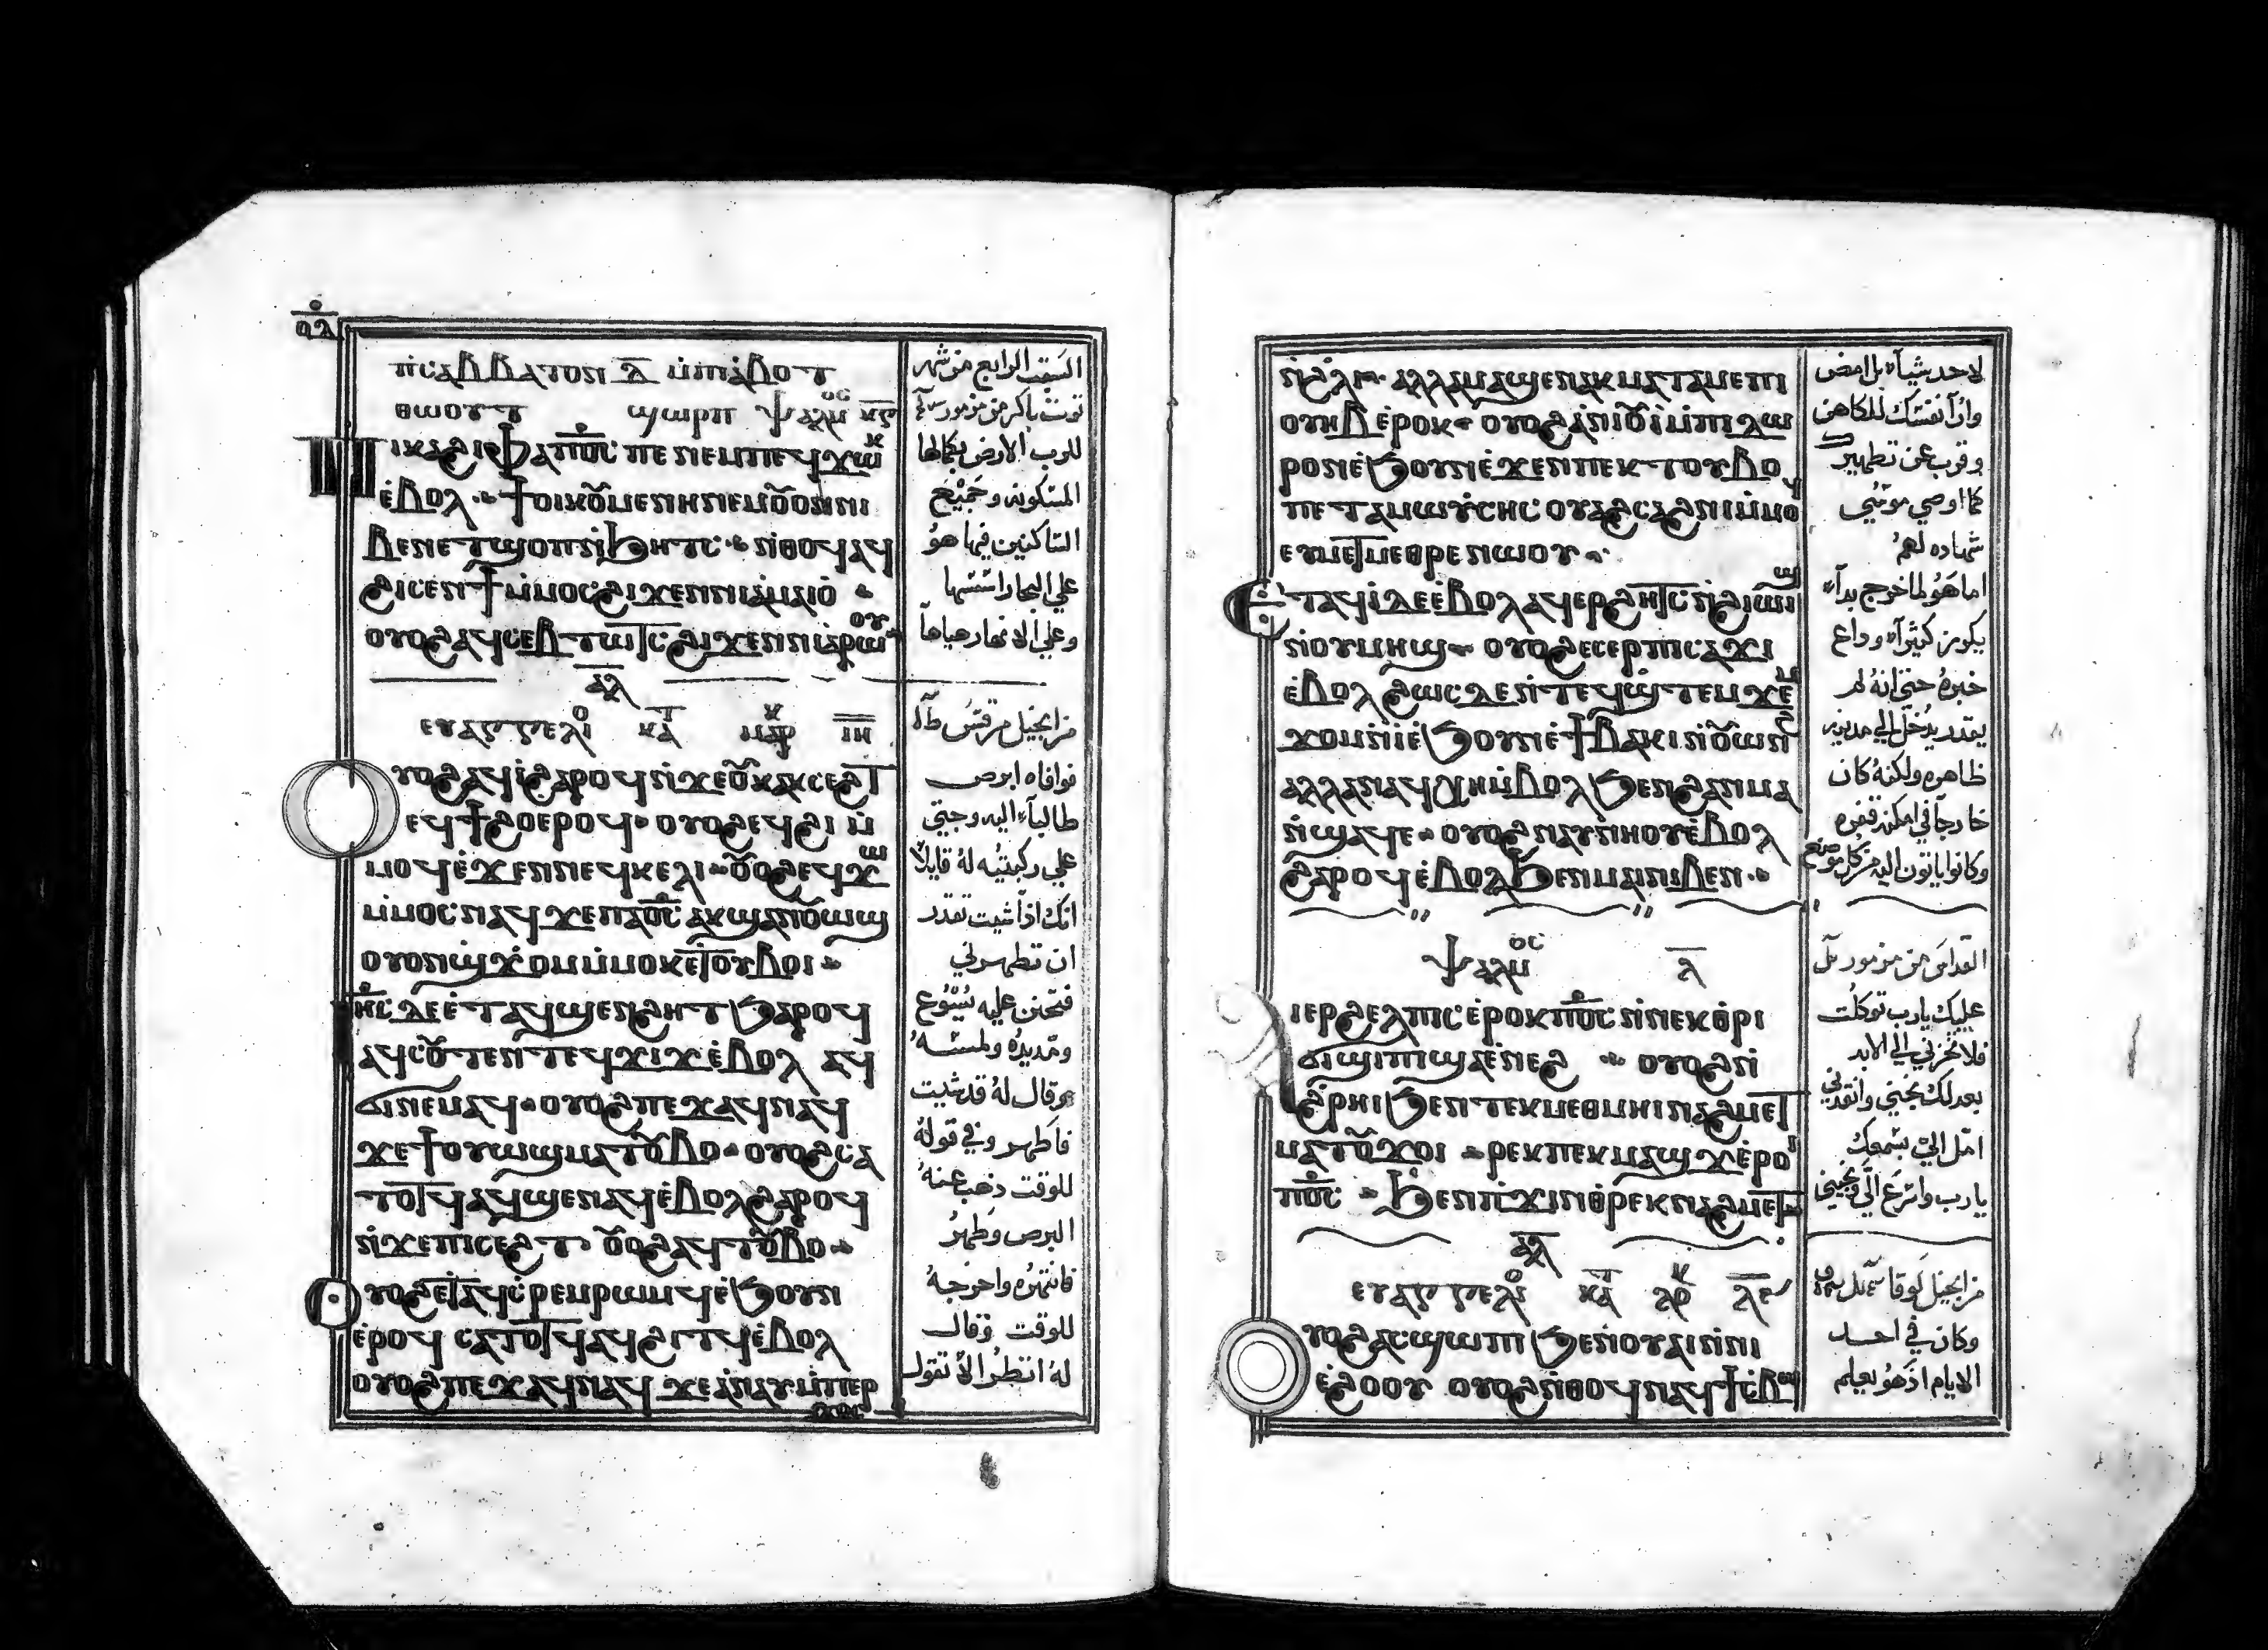 ⲟⲗ
ⲡ̀ⲥⲁⲃⲃⲁⲧⲟⲛ ⲇ̅ ⲙ̀ⲡⲓⲁ̀ⲃⲟⲧ
ⲑⲱⲟⲩⲧ ϣⲱⲣⲡ ⲯⲁⲗⲙⲟⲥ ⲕ̅ⲅ̅
ⲡⲓⲕⲁϩⲓ ⲫⲁⲡⲟ̅ⲥ̅ ⲡⲉ ⲛⲉⲙⲡⲉϥϫⲱⲕ
ⲉ̀ⲃⲟⲗ ⲟ̀ ϯⲟⲓⲕⲟⲩⲙⲉⲛⲏ ⲛⲉⲙⲟⲩⲟⲛ ⲛⲓ
ⲃⲉⲛ ⲉⲧϣⲟⲡ ⲛ̀ϧⲏⲧⲥ ⲛ̀ⲑⲟϥ ⲁϥ
ϩⲓⲥⲉⲛϯ ⲙ̀ⲙⲟⲥ ϩⲓϫⲉⲛ ⲛⲓⲁ̀ⲙⲁⲓⲟⲩ
ⲟⲩⲟϩ ⲁϥⲥⲉⲃⲧⲱⲧⲥ ϩⲓϫⲉⲛ ⲛⲓⲓⲁⲣⲱⲟⲩ
ⲁⲗ
ⲉⲩⲁⲅⲅⲉⲗⲓⲟ ⲕⲁⲧ ⲙⲁⲣⲕ ⲓ̅ⲏ̅
ⲟⲩⲟϩ ⲁϥⲓ̀ ϩⲁⲣⲟϥ ⲛ̀ϫⲉⲟⲩⲕⲁⲕⲥⲉϩⲧ
ⲉϥϯϩⲟ ⲉⲣⲟϥ ⲟⲩⲟϩ ⲉϥϩⲓ ⲙ̀
ⲙⲟϥ ⲉ̀ϫⲉⲛ ⲛⲉϥⲕⲉⲗⲓ ⲟⲩⲟϩ ⲉϥϫⲱ
ⲙ̀ⲙⲟⲥ ⲛⲁϥ ϫⲉ ⲡⲁⲟ̅ⲥ̅ ⲁⲕϣⲁⲛⲟⲩⲱϣ
ⲟⲩⲟⲛ ϣϫⲟⲙ ⲙ̀ⲙⲟⲕ ⲉⲧⲟⲩⲃⲟⲓ
ⲓⲏ̅ⲥ̅ ⲇⲉ ⲉ̀ⲧⲁϥϣⲉⲛϩⲏⲧ ϧⲁⲣⲟϥ
ⲁϥⲥⲟⲩⲧⲉⲛ ⲧⲉϥϫⲓϫ ⲉ̀ⲃⲟⲗ ⲁϥ
ϭⲓⲛⲉⲙⲁϥ ⲟⲩⲟϩ ⲡⲉϫⲁϥ ⲛⲁϥ
ϫⲉ ϯⲟⲩⲱϣ ⲙⲁⲧⲟⲩⲃⲟ ⲟⲩⲟϩ ⲥⲁ
ⲧⲟⲧϥ ⲁϥϣⲉⲛⲁϥ ⲉ̀ⲃⲟⲗ ϩⲁⲣⲟϥ
ⲛ̀ϫⲉ ⲡⲓⲥⲉϩⲧ ⲟⲩⲟϩ ⲁϥⲧⲟⲩⲃⲟ
ⲟⲩⲟϩ ⲉⲧⲁϥϥ̀ⲣⲉⲙⲣⲱⲙϥ ⲉ̀ϧⲟⲩⲛ
ⲉ̀ⲣⲟϥ ⲥⲁⲧⲟⲧϥ ⲁϥϩⲓⲧϥ ⲉ̀ⲃⲟⲗ
ⲟⲩⲟϩ ⲡⲉϫⲁϥ ⲛⲁϥ ϫⲉ ⲁ̀ⲛⲁⲩ ⲙ̀ⲡⲉⲣ
ϫⲟⲥ
السبت الرابع من شهر
توت باكر من مزمور
للرب الارض بكمالها
المسكونه وجميع
الساكنين فيها هو
علي البحار اسسها
وعلي الانهار هياها
من انجيل مرقس
فوافاه ابرص
طالباً اليه وجثي
علي ركبتيه لهُ قايلاً
انك اذا شيت تقدر
ان تطهرني
فتحنن عليه يسوع
ومد يده ولمسه
وقال لهُ قد شيت
فاطهر وفي قوله
للوقت ذهب عنه
البرص وطهر
فانتهره واخرجه
للوقت وقال
له انظر الا تقول
ⲛ̀ϩ̀ⲗⲓ ⲁⲗⲗⲁ ⲙⲁϣⲉⲛⲁⲕ ⲙⲁⲧⲁⲙⲉ ⲡⲓ
ⲟⲩⲏⲃ ⲉ̀ⲣⲟⲕ ⲟⲩⲟϩ ⲁ̀ⲛⲓⲟⲩⲓ̀ ⲙ̀ⲡⲓⲇⲱ
ⲣⲟⲛ ⲉ̀ϧⲟⲩⲛ ⲉ̀ϫⲉⲛ ⲡⲉⲕⲧⲟⲩⲃⲟ
ⲡⲉⲧⲁⲙⲱⲩⲥⲏⲥ ⲟⲩⲁϩⲥⲁϩⲛⲓ ⲙ̀ⲙⲟϥ
ⲉⲩⲙⲉⲧⲙⲉⲑⲣⲉ ⲛⲱⲟⲩ
ⲉⲧⲁϥⲓ̀ ⲇⲉ ⲉ̀ⲃⲟⲗ ⲁϥⲉⲣϩⲏⲧⲥ ⲛ̀ϩⲓⲱⲓϣ
ⲛ̀ⲟⲩⲙⲏϣ ⲟⲩⲟϩ ⲉⲥⲉⲣⲡⲓⲥⲁϫⲓ
ⲉ̀ⲃⲟⲗ ϩⲱⲥⲇⲉ ⲛ̀ⲧⲉϥϣ̀ⲧⲉⲙϫⲉⲙ
ϫⲟⲙ ⲛ̀ⲓ̀ ⲉ̀ϧⲟⲩⲛ ⲉ̀ϯⲃⲁⲕⲓ ⲛ̀ⲟⲩⲱⲛϩ
ⲁⲗⲗⲁ ⲛⲁϥⲭⲏ ⲛ̀ⲃⲟⲗ ϧⲉⲛ ϩⲁⲛⲙⲁ
ⲛ̀ϣⲁϥⲉ ⲟⲩⲟϩ ⲛⲁⲩⲛⲏⲟⲩ ⲉ̀ⲃⲟⲗ
ϩⲁⲣⲟϥ ⲉ̀ⲃⲟⲗ ϧⲉⲛ ⲙⲁⲓ ⲛⲓⲃⲉⲛ
ⲯⲁⲗⲙⲟⲥ ⲗ̅
ⲁⲓⲉⲣϩⲉⲗⲡⲓⲥ ⲉ̀ⲣⲟⲕ ⲡⲟ̅ⲥ̅ ⲛ̀ⲛⲉⲕⲑⲣⲓ
ϭⲓϣⲓⲡⲓ ϣⲁⲉ̀ⲛⲉϩ ⲟⲩⲟϩ ⲛ̀
ϩ̀ⲣⲏⲓ ϧⲉⲛ ⲧⲉⲕⲙⲉⲑⲙⲏⲓ ⲛⲁϩⲙⲉⲧ
ⲙⲁⲧⲟⲩϫⲟⲓ ⲣⲉⲕ ⲡⲉⲕⲙⲁϣϫ ⲉ̀ⲣⲟⲓ
ⲡⲟ̅ⲥ̅ ϧⲉⲛ ⲡ̀ϫⲓⲛⲑⲣⲉⲕⲛⲁϩⲙⲉⲧ
ⲁⲗ
ⲉⲩⲁⲅⲅⲉⲗⲓⲟ ⲕⲁⲧ ⲗⲟⲩⲕ
ⲟⲩⲟϩ ⲁⲥϣⲱⲡⲓ ϧⲉⲛ ⲟⲩⲁⲓ ⲛ̀ⲛⲓ
ⲉ̀ϩⲟⲟⲩ ⲟⲩⲟϩ ⲛ̀ⲑⲟϥ ⲛⲁϥϯⲥ̀ⲃⲱ
لاحد شياً بل امض
واري نفسك للكاهن
وقرب عن تطهيرك
كما اوصي موسي
شهاده لهم
اما هو لما خرج بدأ
يكرز كثيراً وذاع
خبره حتي انه لم
يقدر يدخل الي مدينه
ظاهره ولكنه كان
خارجاً في امكنه قفره
وكانوا ياتون اليه من كل موضع
القداس من مزمور
عليك يارب توكلت
فلا تخزني الي الابد
بعدلك نجني وانقذني
امل اليّ بسمعك
يارب واسرع اليّ ونجيني
من انجيل لوقا
وكان في احد
الايام اذ هو يعلم